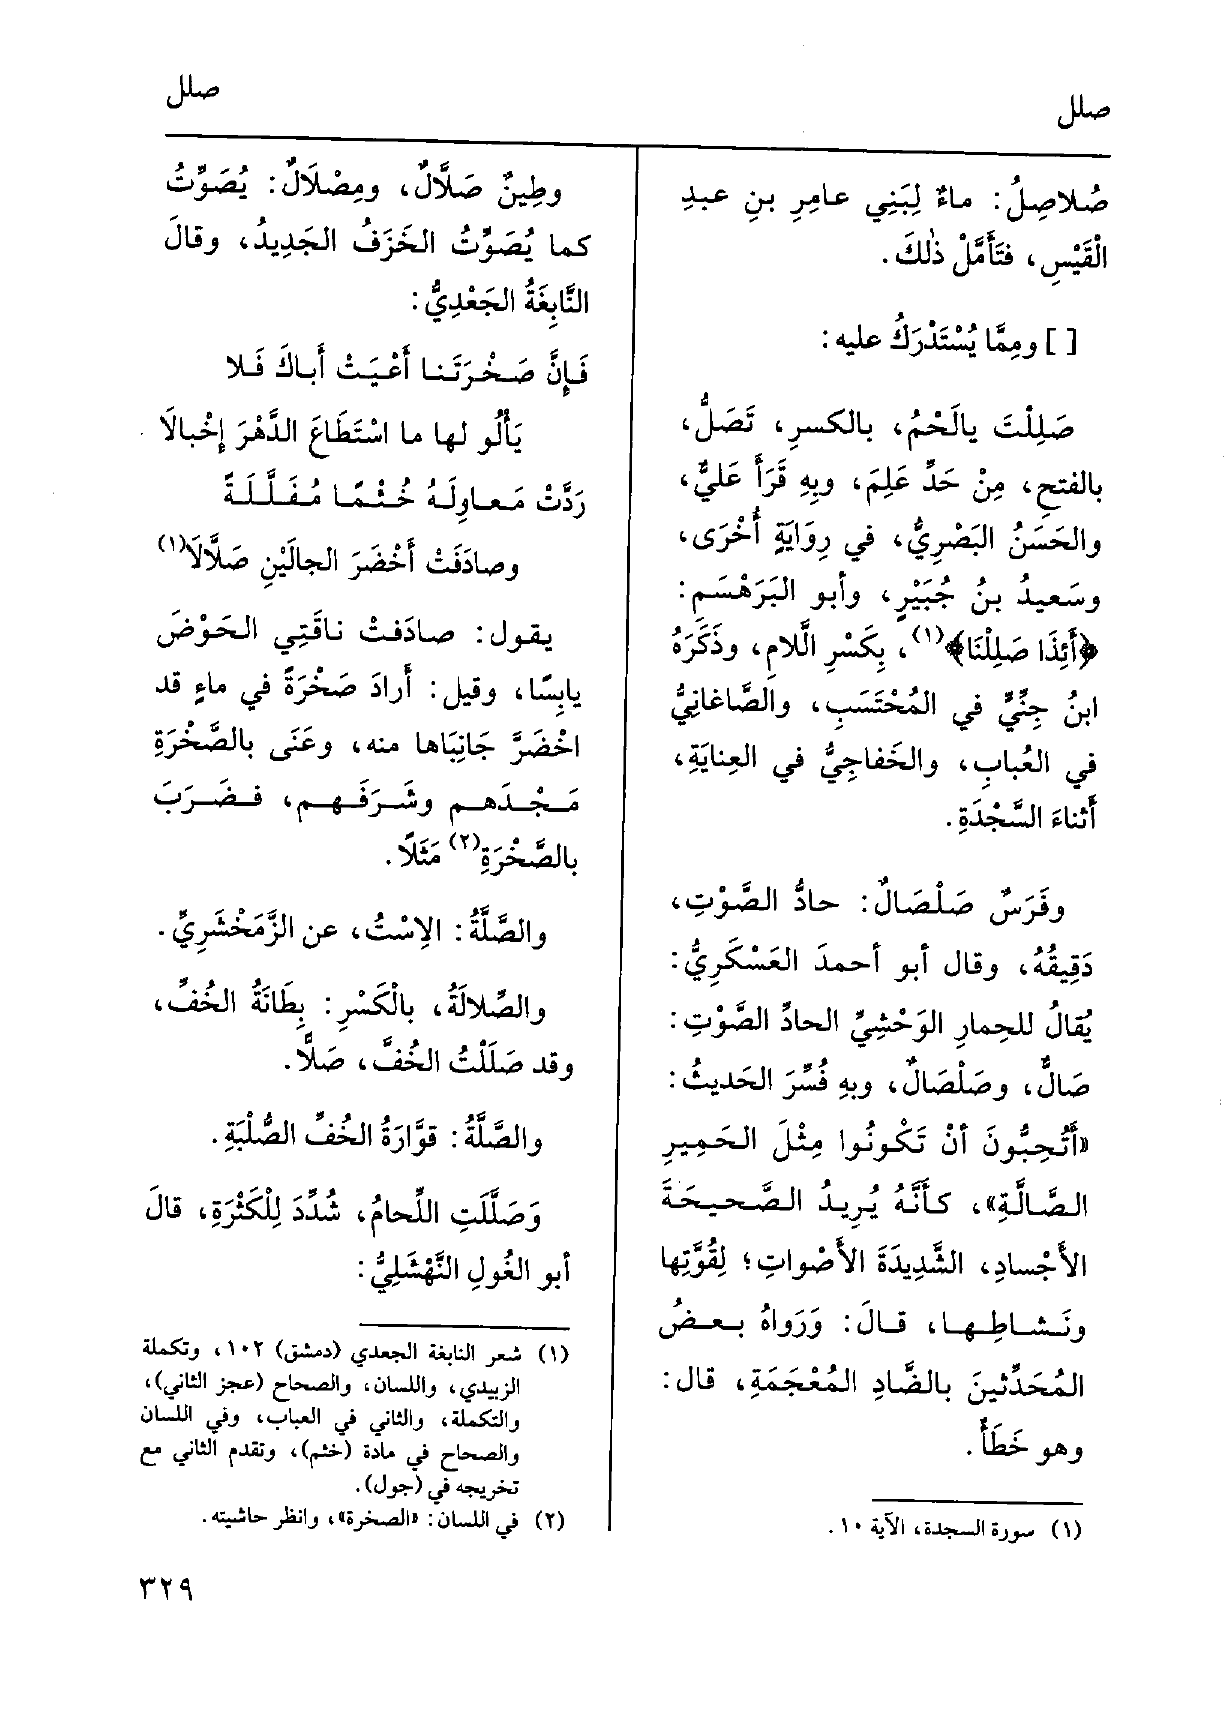 صلل
صلل
صُلاصِلُ: ماءٌ لِبَنِي عامِرِ بنِ عبدِ
الْقَيْسِ، فتَأَمَّلْ ذٰلكَ.
[ ] ومِمَّا يُسْتَدْرَكُ عليه:
صَلِلْتَ يالَحْمُ، بالكسرِ، تَصَلُّ،
بالفتحِ، مِنْ حَدِّ عَلِمَ، وبِهِ قَرَأَ عَلِيٌّ،
والحَسَنُ البَصْرِيُّ، في رِوَايَةٍ أُخْرَى،
وسَعيدُ بنُ جُبَيْرٍ، وأبو البَرَهْسَمِ:
﴿أَئِذَا صَلِلْنَا﴾(١)، بِكَسْرِ الَّلامِ، وذَكَرَهُ
ابنُ جِنِّيٍّ في المُحْتَسَبِ، والصَّاغانِيُّ
في العُبابِ، والخَفاجِيُّ في العِنايَةِ،
أَثناءَ السَّجْدَةِ.
وفَرَسٌ صَلْصَالٌ: حادُّ الصَّوْتِ،
دَقِيقُهُ، وقال أبو أحمدَ العَسْكَرِيُّ:
يُقالُ للحِمارِ الوَحْشِيِّ الحادِّ الصَّوْتِ:
صَالٌّ، وصَلْصَالٌ، وبِهِ فُسِّرَ الحَديثُ:
«أَتُحِبُّونَ أنْ تَكُونُوا مِثْلَ الحَمِيرِ
الصَّالَّةِ»، كأَنَّهُ يُرِيدُ الصَّحيحَةَ
الأَجْسادِ، الشَّدِيدَةَ الأَصْواتِ؛ لِقُوَّتِها
ونَشاطِها، قالَ: وَرَواهُ بعضُ
المُحَدِّثينَ بالضَّادِ المُعْجَمَةِ، قال:
وهو خَطَأٌ.
(١) سورة السجدة، الآية ١٠.
وطِينٌ صَلَّالٌ، ومِصْلَالٌ: يُصَوِّتُ
كما يُصَوِّتُ الخَزَفُ الجَدِيدُ، وقالَ
النَّابِغَةُ الجَعْدِيُّ:
فَإِنَّ صَخْرَتَنا أَعْيَتْ أَباكَ فَلا
يَأْلُو لها ما اسْتَطَاعَ الدَّهْرَ إخْبالَا
رَدَّتْ مَعاوِلَهُ خُثْمًا مُفَلَّلَةً
وصادَفَتْ أَخْضَرَ الجالَيْنِ صَلَّالَا(١)
يقول: صادَفتْ ناقَتِي الحَوْضَ
يابِسًا، وقيل: أرادَ صَخْرَةً في ماءٍ قد
اخْضَرَّ جَانِبَاها منه، وعَنَى بالصَّخْرَةِ
مَجْدَهم وشَرَفَهم، فضَرَبَ
بالصَّخْرَةِ(٢) مَثَلًا.
والصَّلَّةُ: الاِسْتُ، عن الزَّمَخْشَرِيِّ.
والصِّلالَةُ، بالْكَسْرِ: بِطَانَةُ الخُفِّ،
وقد صَلَلْتُ الخُفَّ، صَلًّا.
والصَّلَّةُ: قوَّارَةُ الخُفِّ الصُّلْبَةِ.
وَصَلَّلَتِ اللِّحامُ، شُدِّدَ لِلْكَثْرَةِ، قالَ
أبو الغُولِ النَّهْشَلِيُّ:
(١) شعر النابغة الجعدي (دمشق) ١٠٢، وتكملة
الزبيدي، واللسان، والصحاح (عجز الثاني)،
والتكملة، والثاني في العباب، وفي اللسان
والصحاح في مادة (خثم)، وتقدم الثاني مع
تخريجه في (جول).
(٢) في اللسان: «الصخرة»، وانظر حاشيته.
٣٢٩